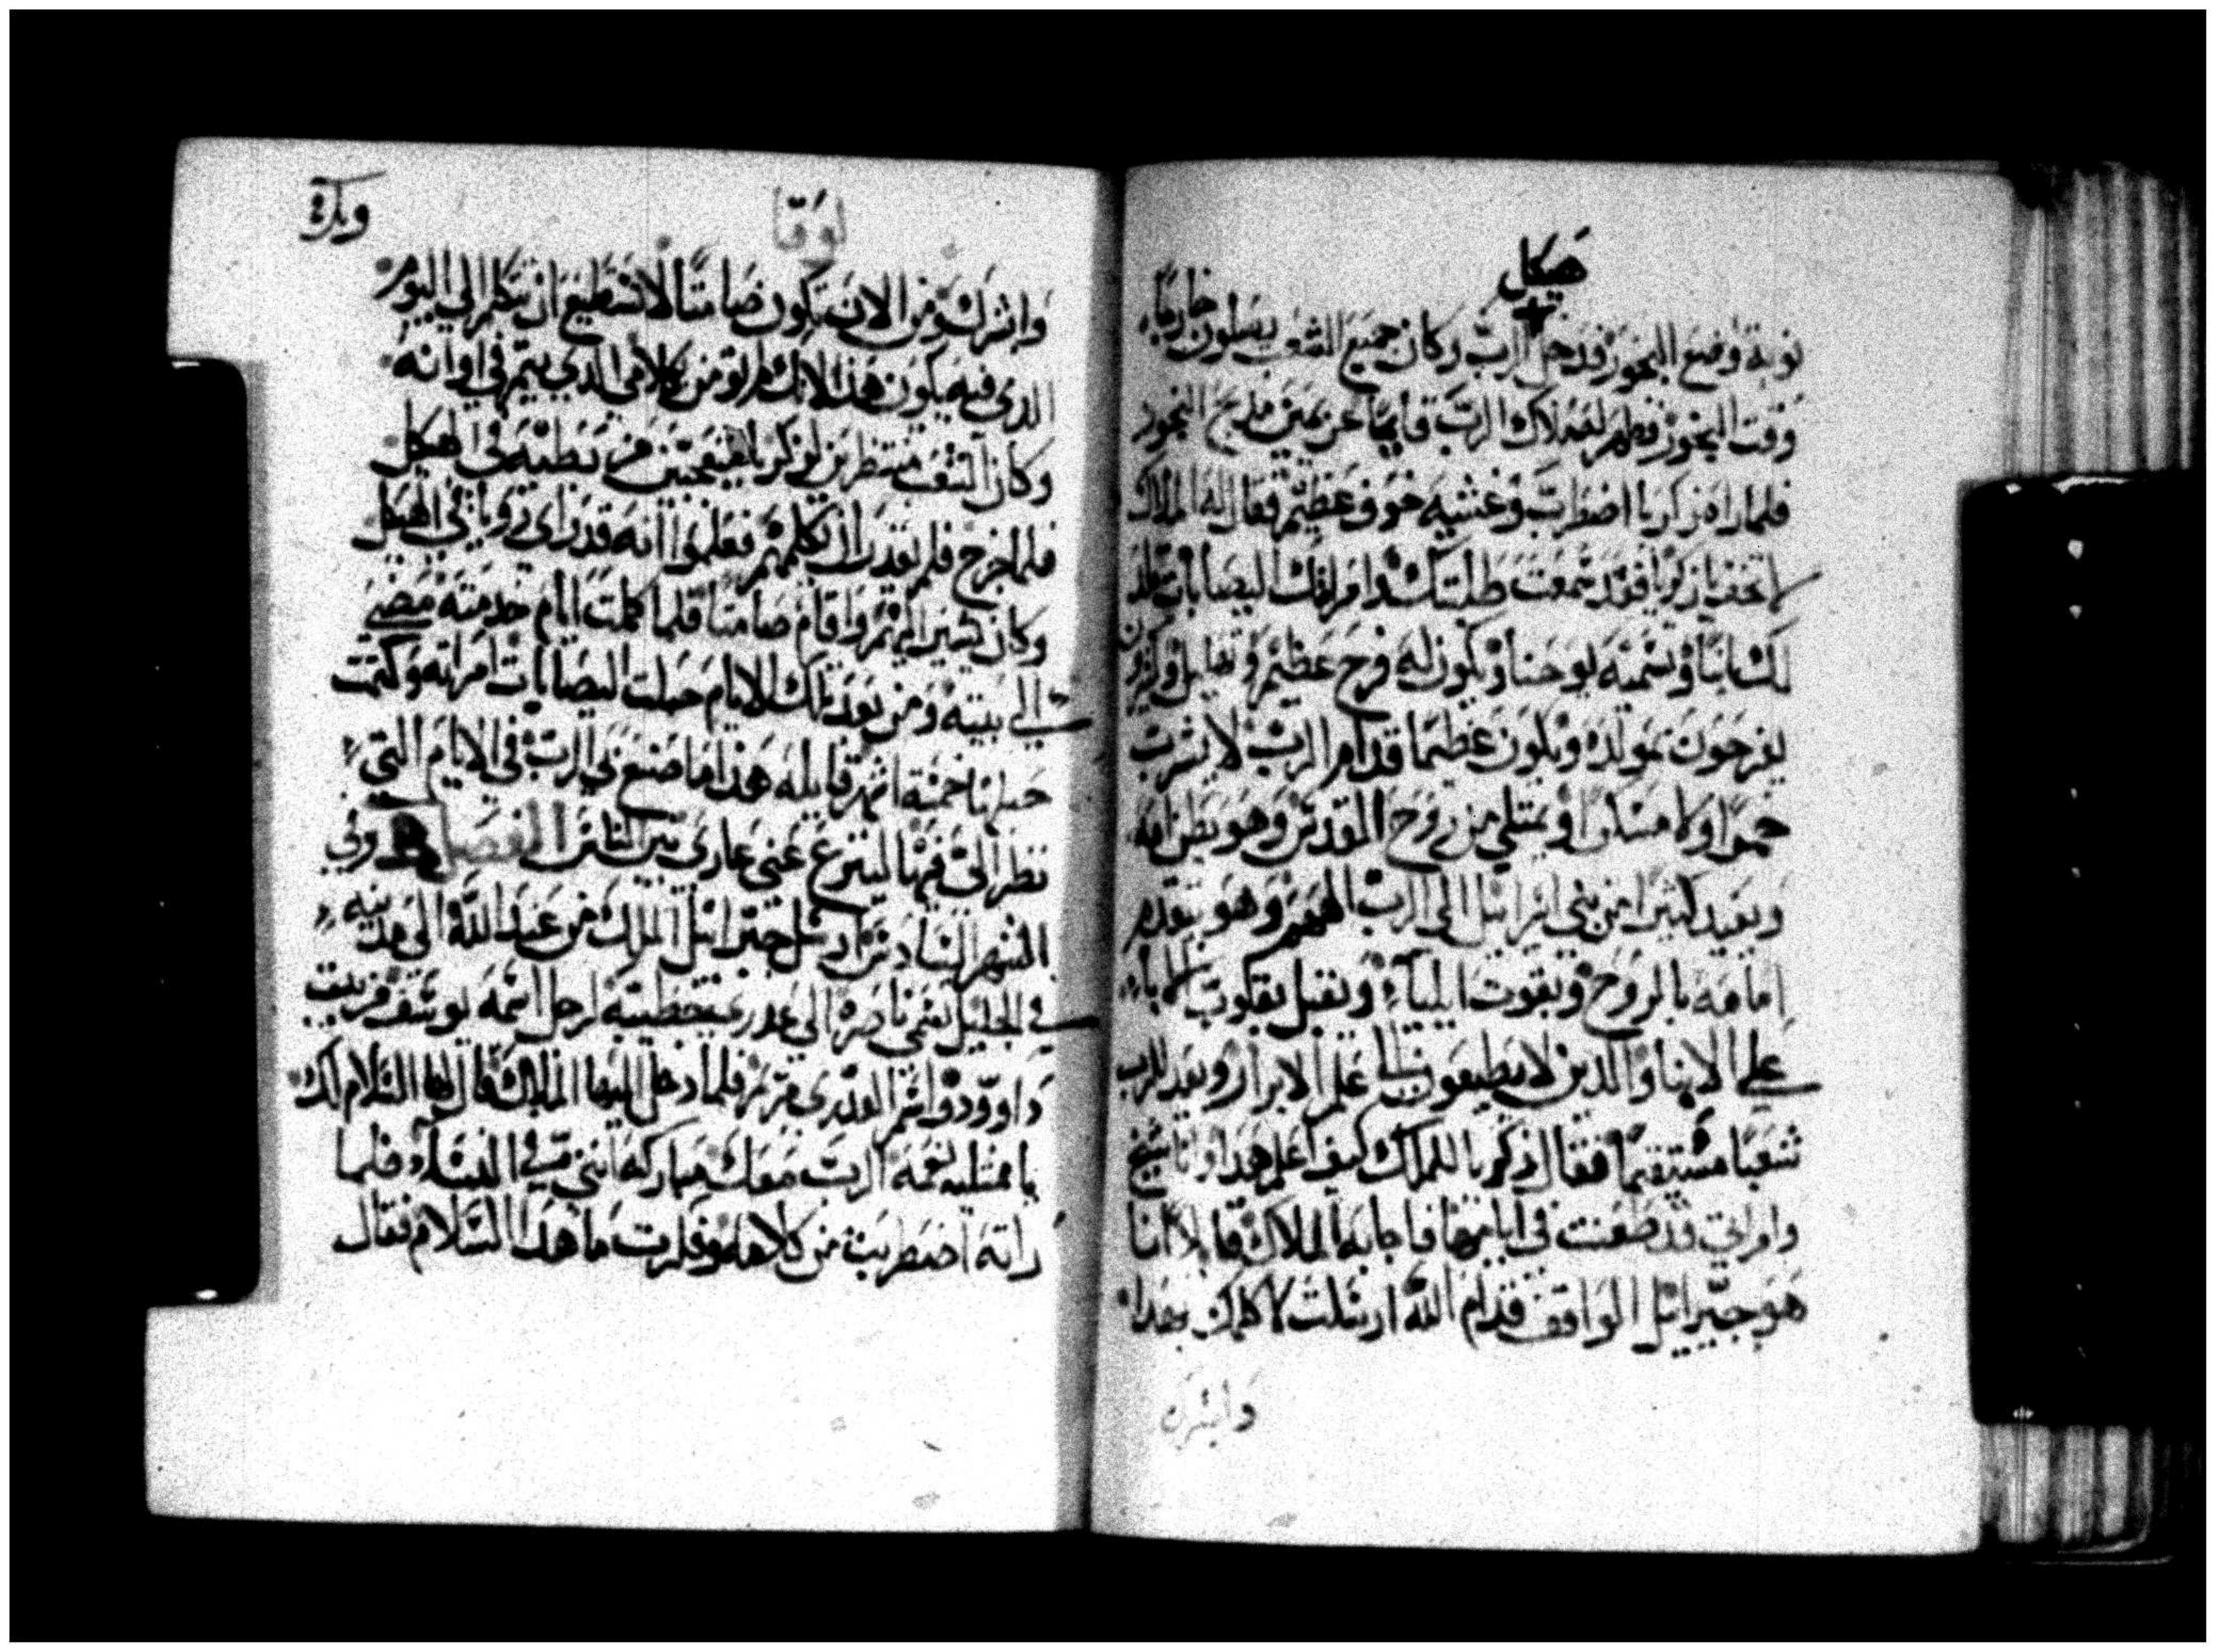 هيكل
نوبة وضع البخور فدخل الرب وكان جميع الشعب يصلون خارجا
وقت البخور فظهر له ملاك الرب قايما عن يمين مذبح البخور
فلما راه زكريا اضطرب وغشيه خوف عظيم فقال له الملاك
لا تخف يا زكريا فقد سمعت طلبتك وامراتك اليصابات تلد
لك ابنا وتسميه يوحنا ويكون لك فرح عظيم وتهليل وكثيرون
يفرحون بمولده ويكون عظيما قدام الرب لا يشرب
خمرا ولا مسكرا ويمتلي من روح القدس وهو بطن امه
ويعيد كثيرا من بني اسرايل الى الرب الههم وهو يتقدم
امامه بالروح وبقوت ايليا ويقبل بقلوب الابا
على الابنا والذين لا يطيعون الى علم الابرار ويعد للرب
شعبا مستقيما فقال زكريا للملاك كيف اعلم هدا وانا شيخ
وامراتي قد طعنت في ايامها فاجابه الملاك قايلا انا
هو جبرائيل الواقف قدام الله ارسلت لاكلمك بهدا
وابشرك
لوقا
وابشرك ومن الان تكون صامتا لا تستطيع ان تتكلم الى اليوم
الدي فيه يكون هذا لانك لم تومن بكلامي الدي يتم في اوانه
وكان الشعب منتظرين لزكريا متعجبين من بطيه في الهيكل
فلما خرج فلم يقدر ان يكلمهم فعلموا انه قد راى رويا في الهيكل
وكان يشير اليهم واقام صامتا فلما كملت ايام خدمته مضى
الى بيته ومن بعد تلك الايام حبلت اليصابات امراته وكتمت
حبلها خمسة اشهر قايله هدا ما صنع بي الرب في الايام التي
نظر الي فيها لينزع عني عاري بين الناس الفصل وفي
الشهر السادس ارسل جبرائيل الملاك من عند الله الى مدينه
في الجليل تسمى ناصره الى عدرى خطيبه لرجل اسمه يوسف من بيت
داوود واسم العدرى مريم فلما دخل اليها الملاك قال لها السلام لك
يا ممتليه نعمه الرب معك مباركه انتي في النسا فلما
راته اضطربت من كلامه وفكرت ما هدا السلام فقال